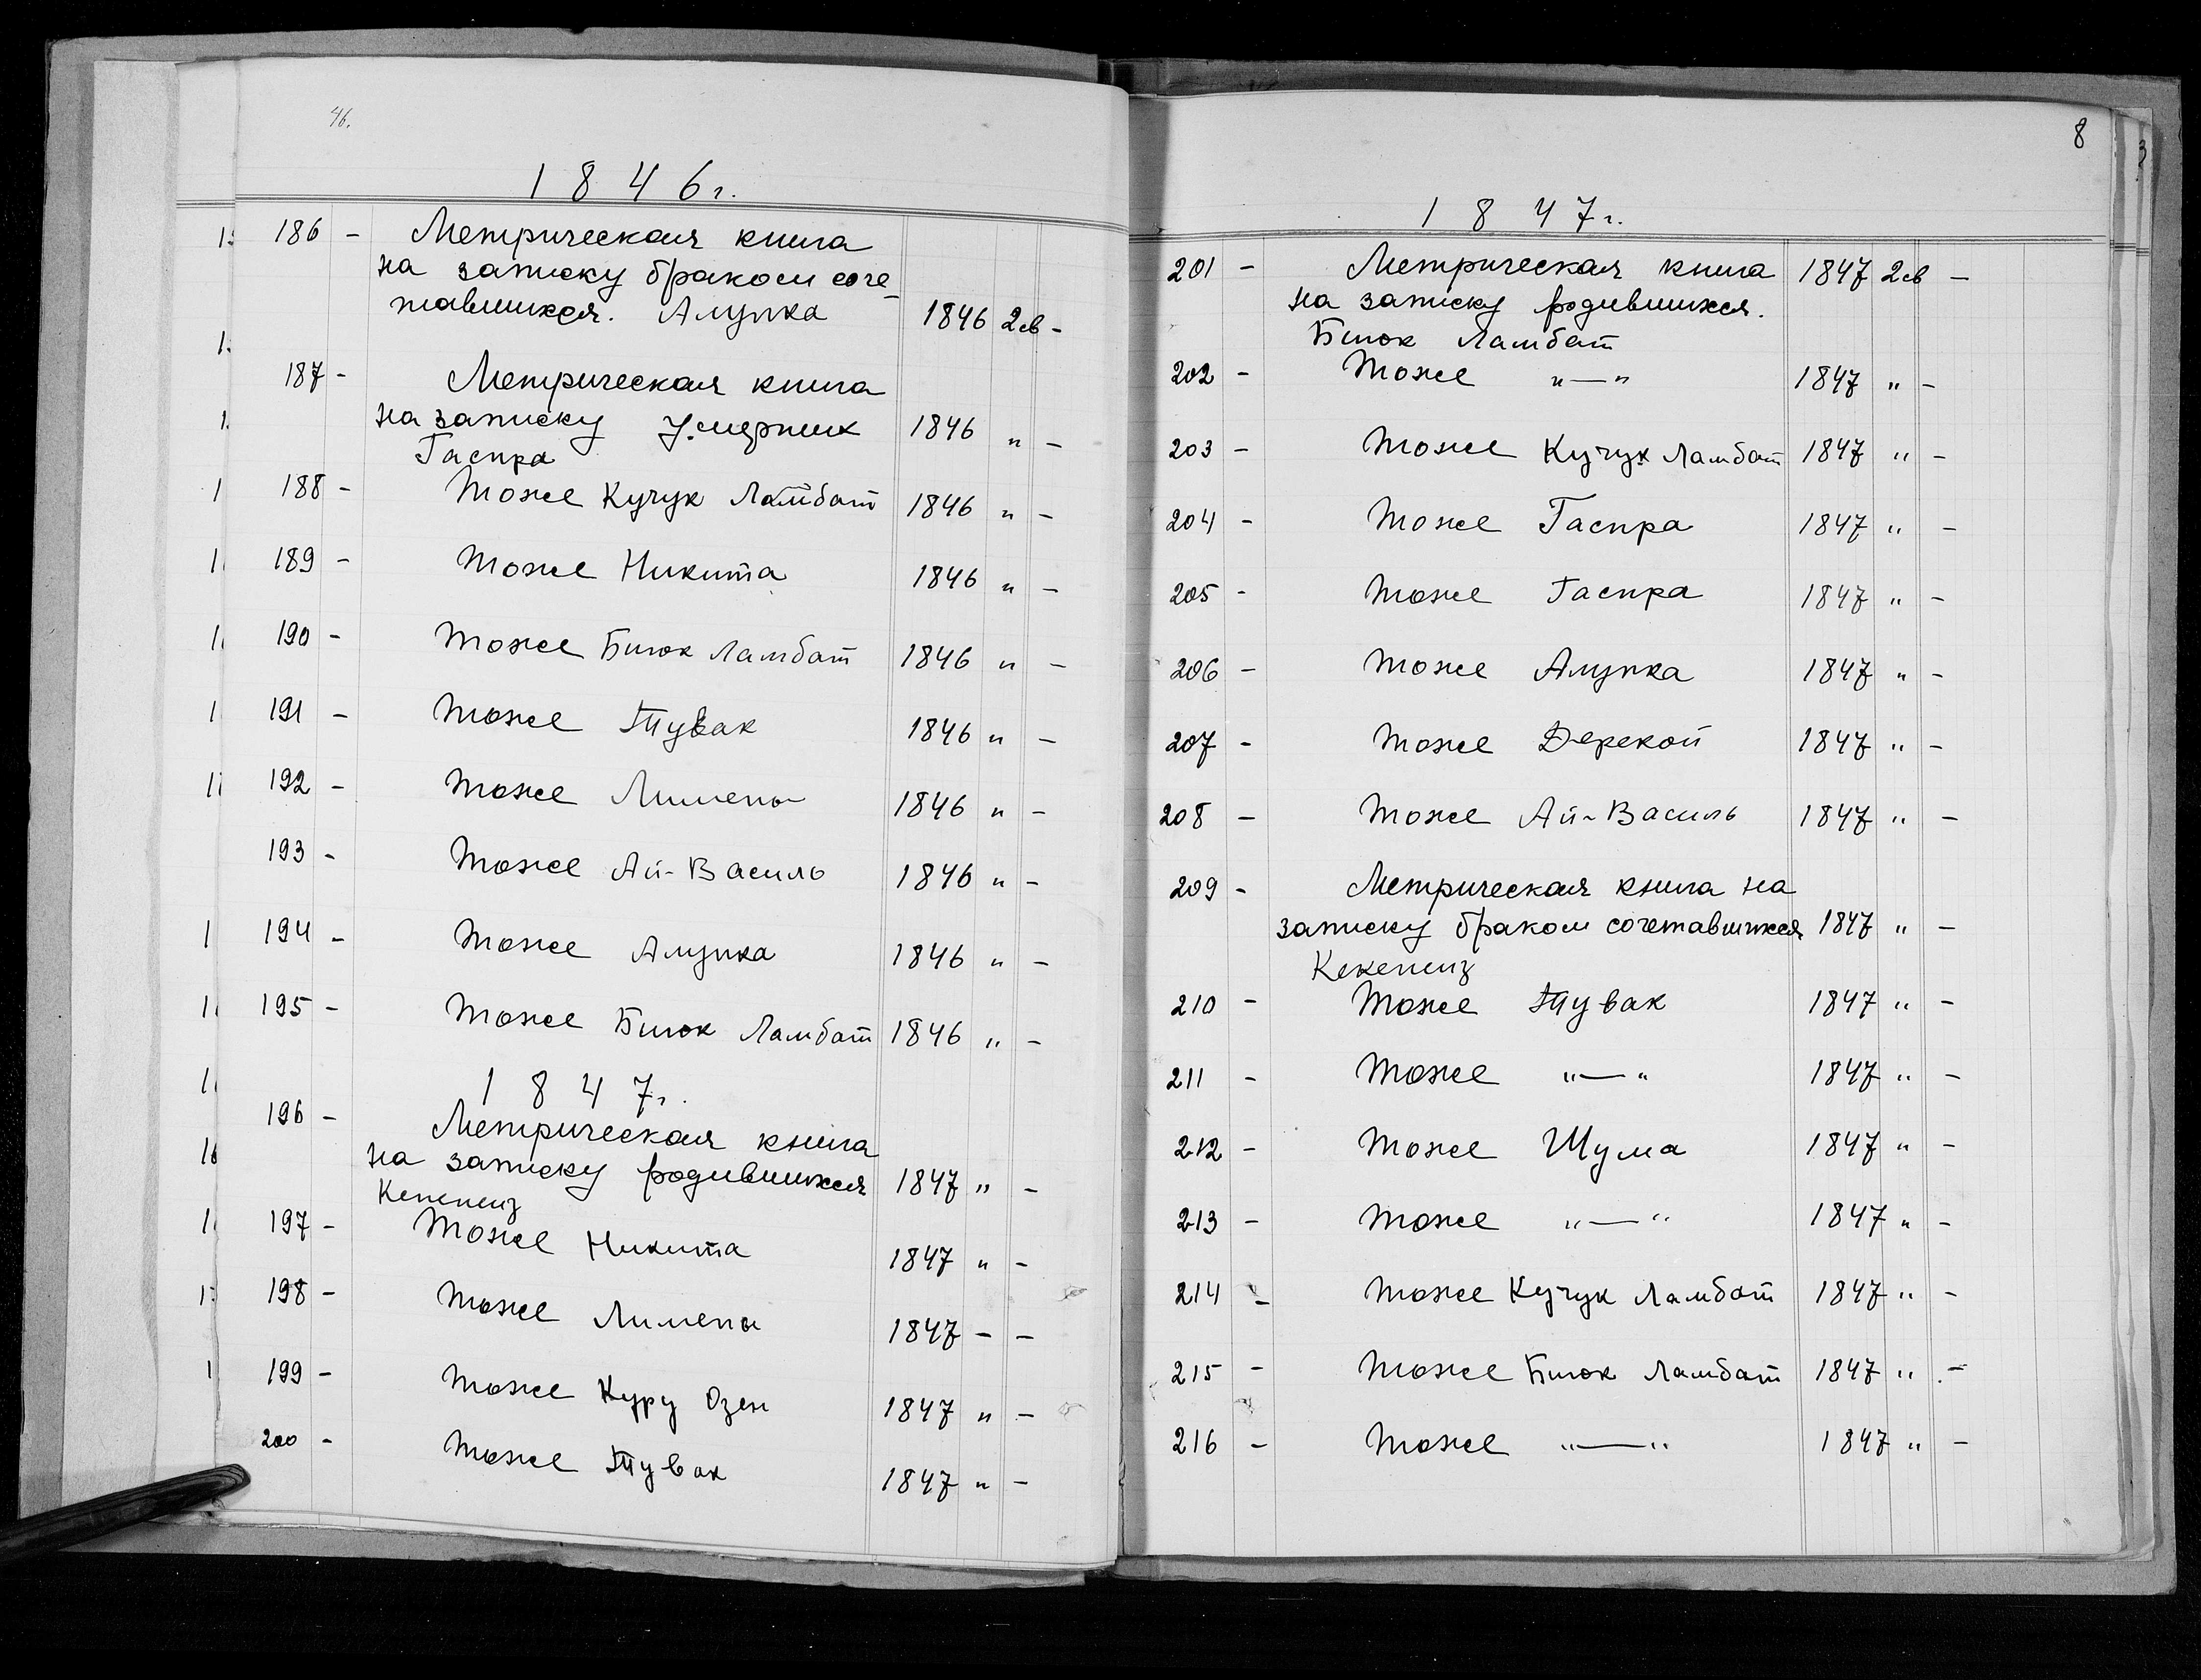 46.
1846г.
186 - Метрическая книга
на записку браком соче-
тавшихся. Алупка 1846 2св -
187 - Метрическая книга
на записку умерших 1846 " -
Гаспра
188 - Тоже Кучук Ламбат 1846 " -
189 - Тоже Никита 1846 " -
190 - Тоже Биюк Ламбат 1846 " -
191 - Тоже Тувак 1846 " -
192 - Тоже Лимены 1846 " -
193 - Тоже Ай-Василь 1846 " -
194 - Тоже Алупка 1846 " -
195 - Тоже Биюк Ламбат 1846 " -
1847г.
196 - Метрическая книга
на записку родившихся 1847 " -
Кекенеиз
197 - Тоже Никита 1847 " -
198 - Тоже Лимены 1847 - -
199 - Тоже Куру Озен 1847 " -
200 - Тоже Тувак 1847 " -
8
1847г.
201 - Метрическая книга 1847 2св -
на записку родившихся.
Биюк Ламбат
202 - Тоже "—" 1847 " -
203 - Тоже Кучук Ламбат 1847 " -
204 - Тоже Гаспра 1847 " -
205 - Тоже Гаспра 1847 " -
206 - Тоже Алупка 1847 " -
207 - Тоже Дерекой 1847 " -
208 - Тоже Ай-Василь 1847 " -
209 - Метрическая книга на
записку браком сочетавшихся 1847 " -
Кекенеиз
210 - Тоже Тувак 1847 " -
211 - Тоже "—" 1847 " -
212 - Тоже Шума 1847 " -
213 - Тоже "—" 1847 " -
214 - Тоже Кучук Ламбат 1847 " -
215 - Тоже Биюк Ламбат 1847 " -
216 - Тоже "—" 1847 " -